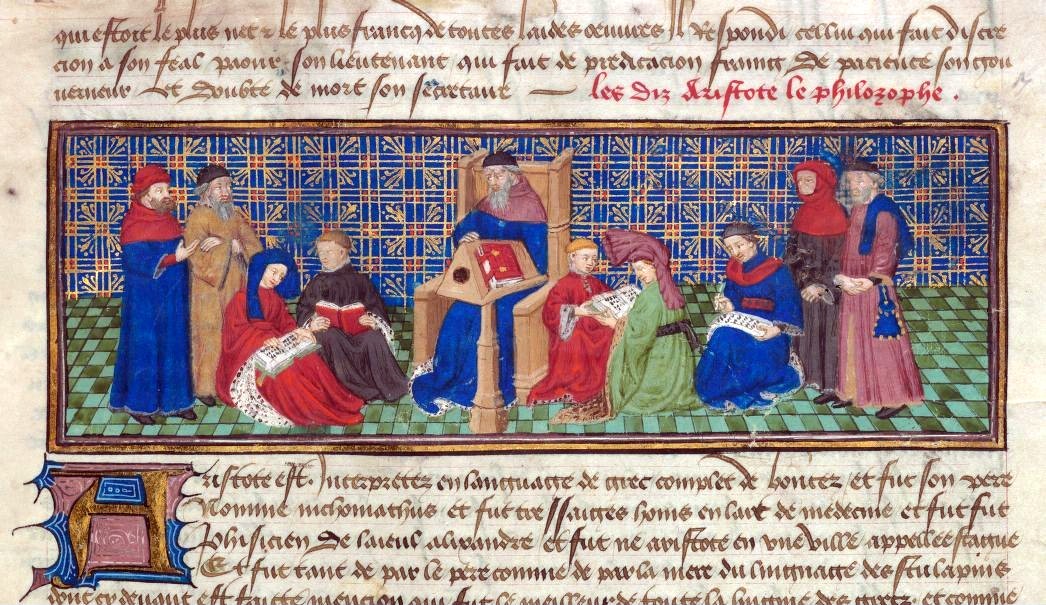 qui estoit le plus net & le plus francq de toutes laides oeuures Respondi cellui qui fait discre
cion a son feal paour son lieutenant qui fait de predicacion franng De pacience son gou
uerneur Et doubte de mort son secretaire — les diz Aristote le philozophe .
Aristote est Interpretez en languaige de grec complet de bontez et fut son pere
Nomme nichomathus et fut tressaiges homs en lart de medecine et fut fut
phisicien de laieul alixandre et fut ne aristote en vne ville appellee stague
Et fut tant de par le pere comme de par la mere du linguaige des Esculapius
dont cy deuant est faitte mencion qui fut le meilleur de toute la lignie des grez et comme